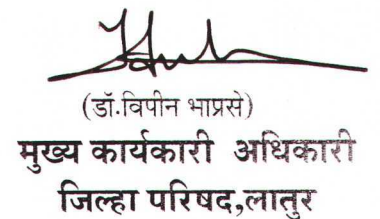 (डॉ.विपीन भाप्रसे)
मुख्य कार्यकारी अधिकारी
जिल्हा परिषद,लातुर